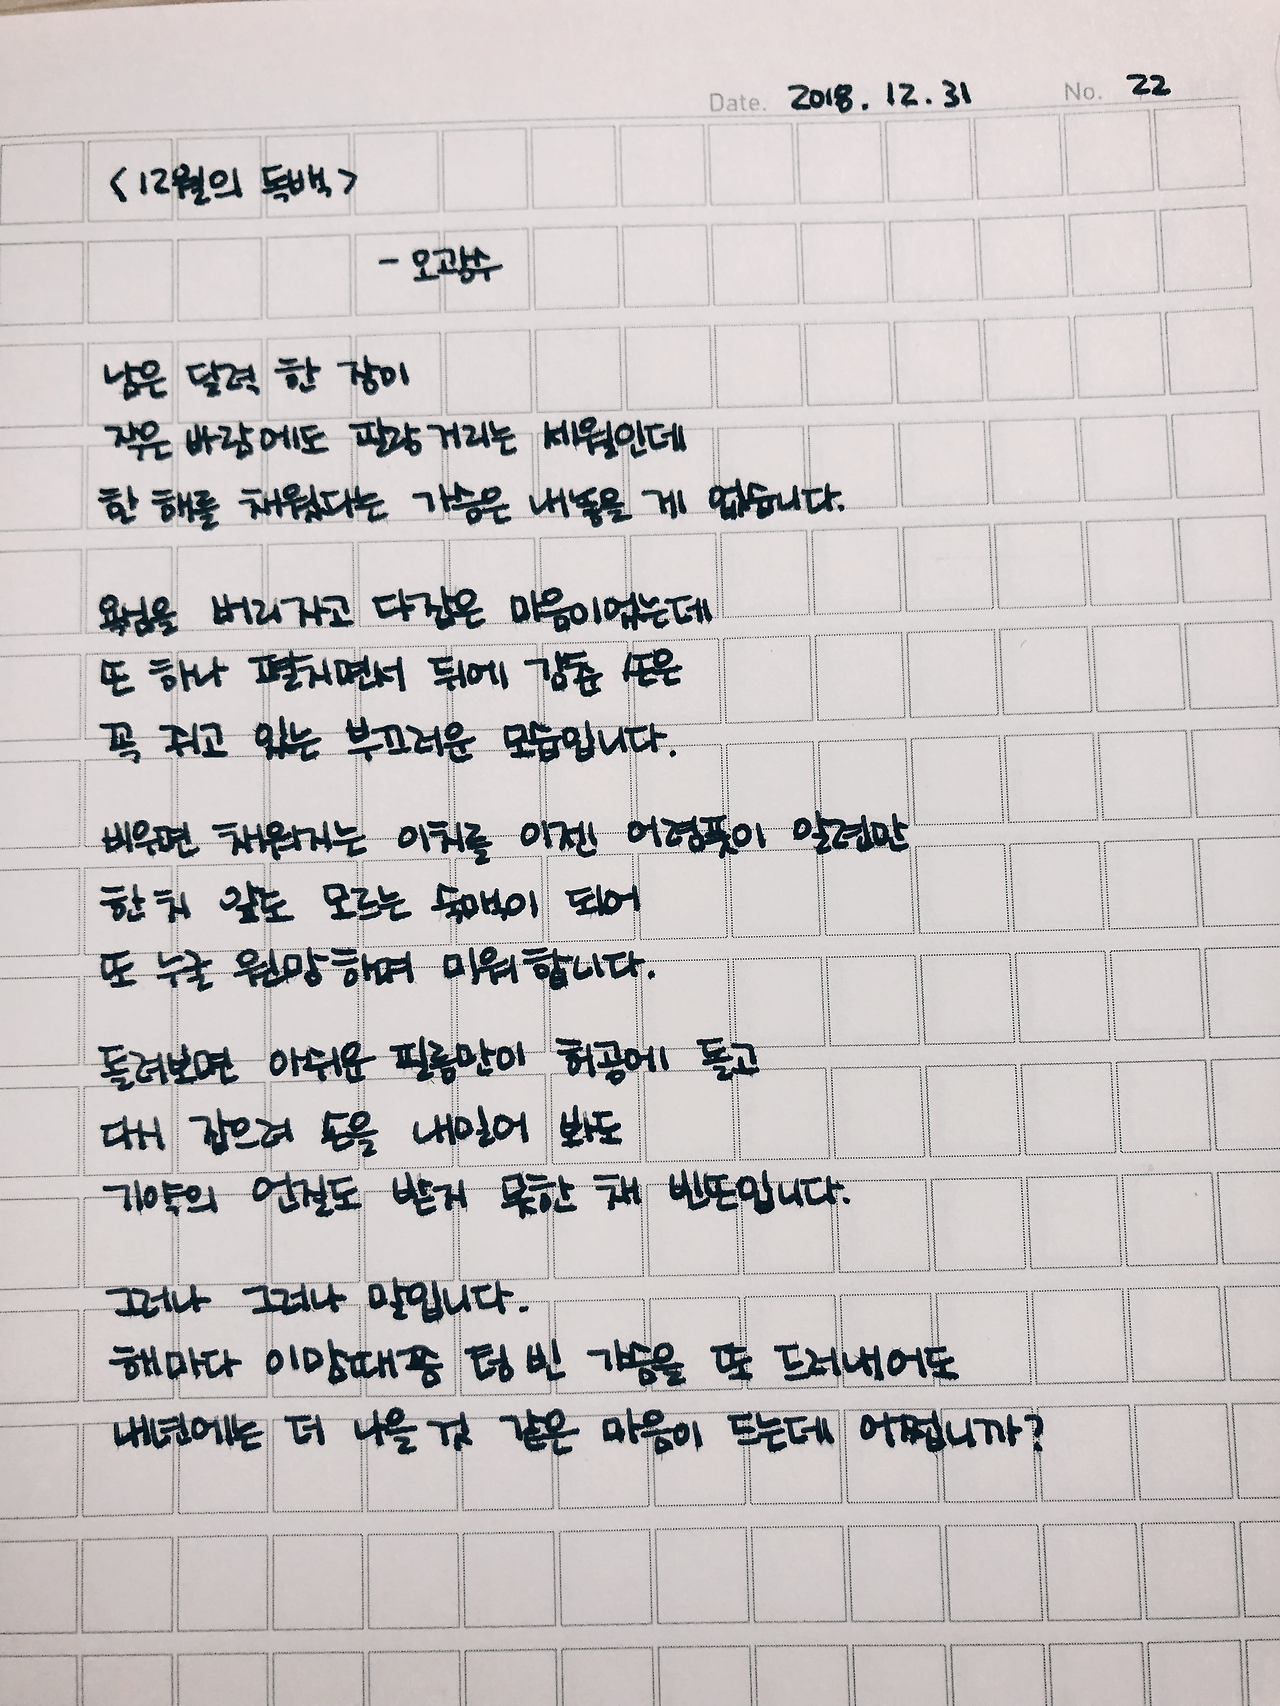 Date. 2018. 12. 31 No. 22
<12월의 독백>
- 오광수
남은 달력 한 장이
작은 바람에도 팔랑거리는 세월인데
한 해를 채웠다는 가슴은 내놓을 게 없습니다.
욕심을 버리자고 다잡은 마음이었는데
또 하나 펼치면서 뒤에 감춘 손은
꼭 쥐고 있는 부끄러운 모습입니다.
비우면 채워지는 이치를 이젠 어렴풋이 알련만
한치 앞도 모르는 숙맥이 되어
또 누굴 원망하며 미워합니다.
돌려보면 아쉬운 필름만이 허공에 돌고
다시 잡으려 손을 내밀어 봐도
기약의 언질도 받지 못한 채 빈손입니다.
그러나 그러나 말입니다.
해마다 이맘때쯤 텅 빈 가슴을 또 드러내어도
내년에는 더 나을 것 같은 마음이 드는데 어쩝니까?